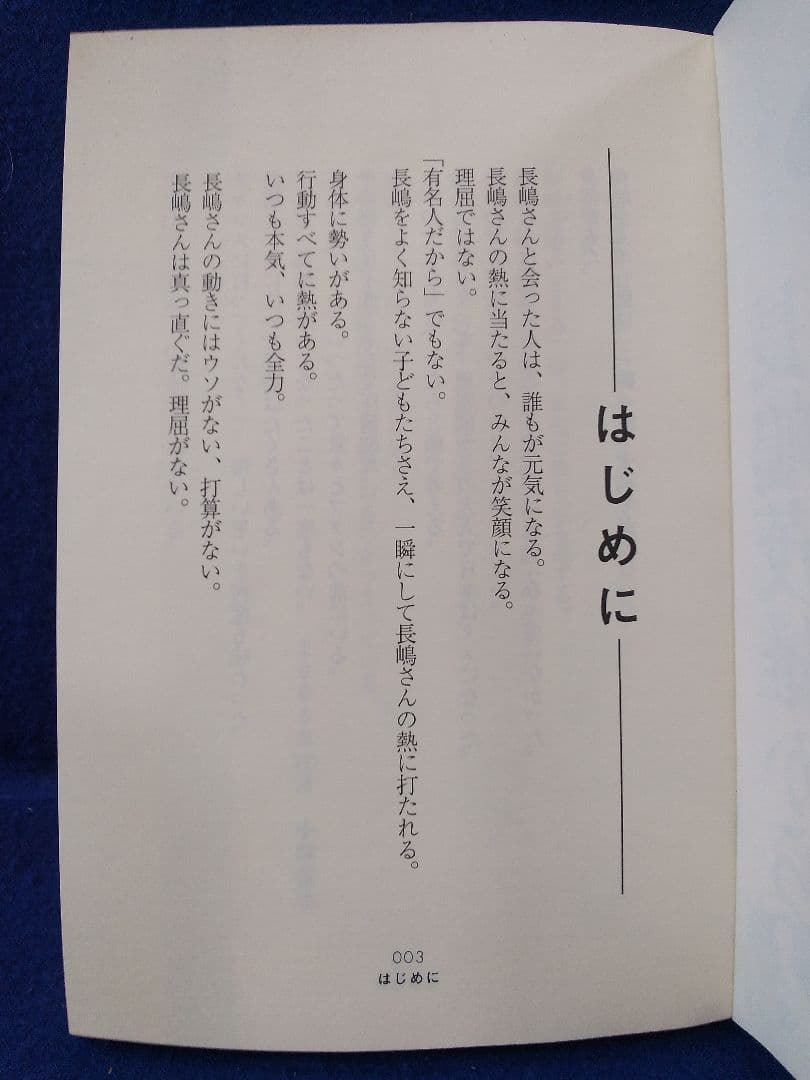 はじめに
長嶋さんと会った人は、誰もが元気になる。
長嶋さんの熱に当たると、みんなが笑顔になる。
理屈ではない。
「有名人だから」でもない。
長嶋をよく知らない子どもたちさえ、一瞬にして長嶋さんの熱に打たれる。
身体に勢いがある。
行動すべてに熱がある。
いつも本気、いつも全力。
長嶋さんの動きにはウソがない、打算がない。
長嶋さんは真っ直ぐだ。理屈がない。
003
はじめに